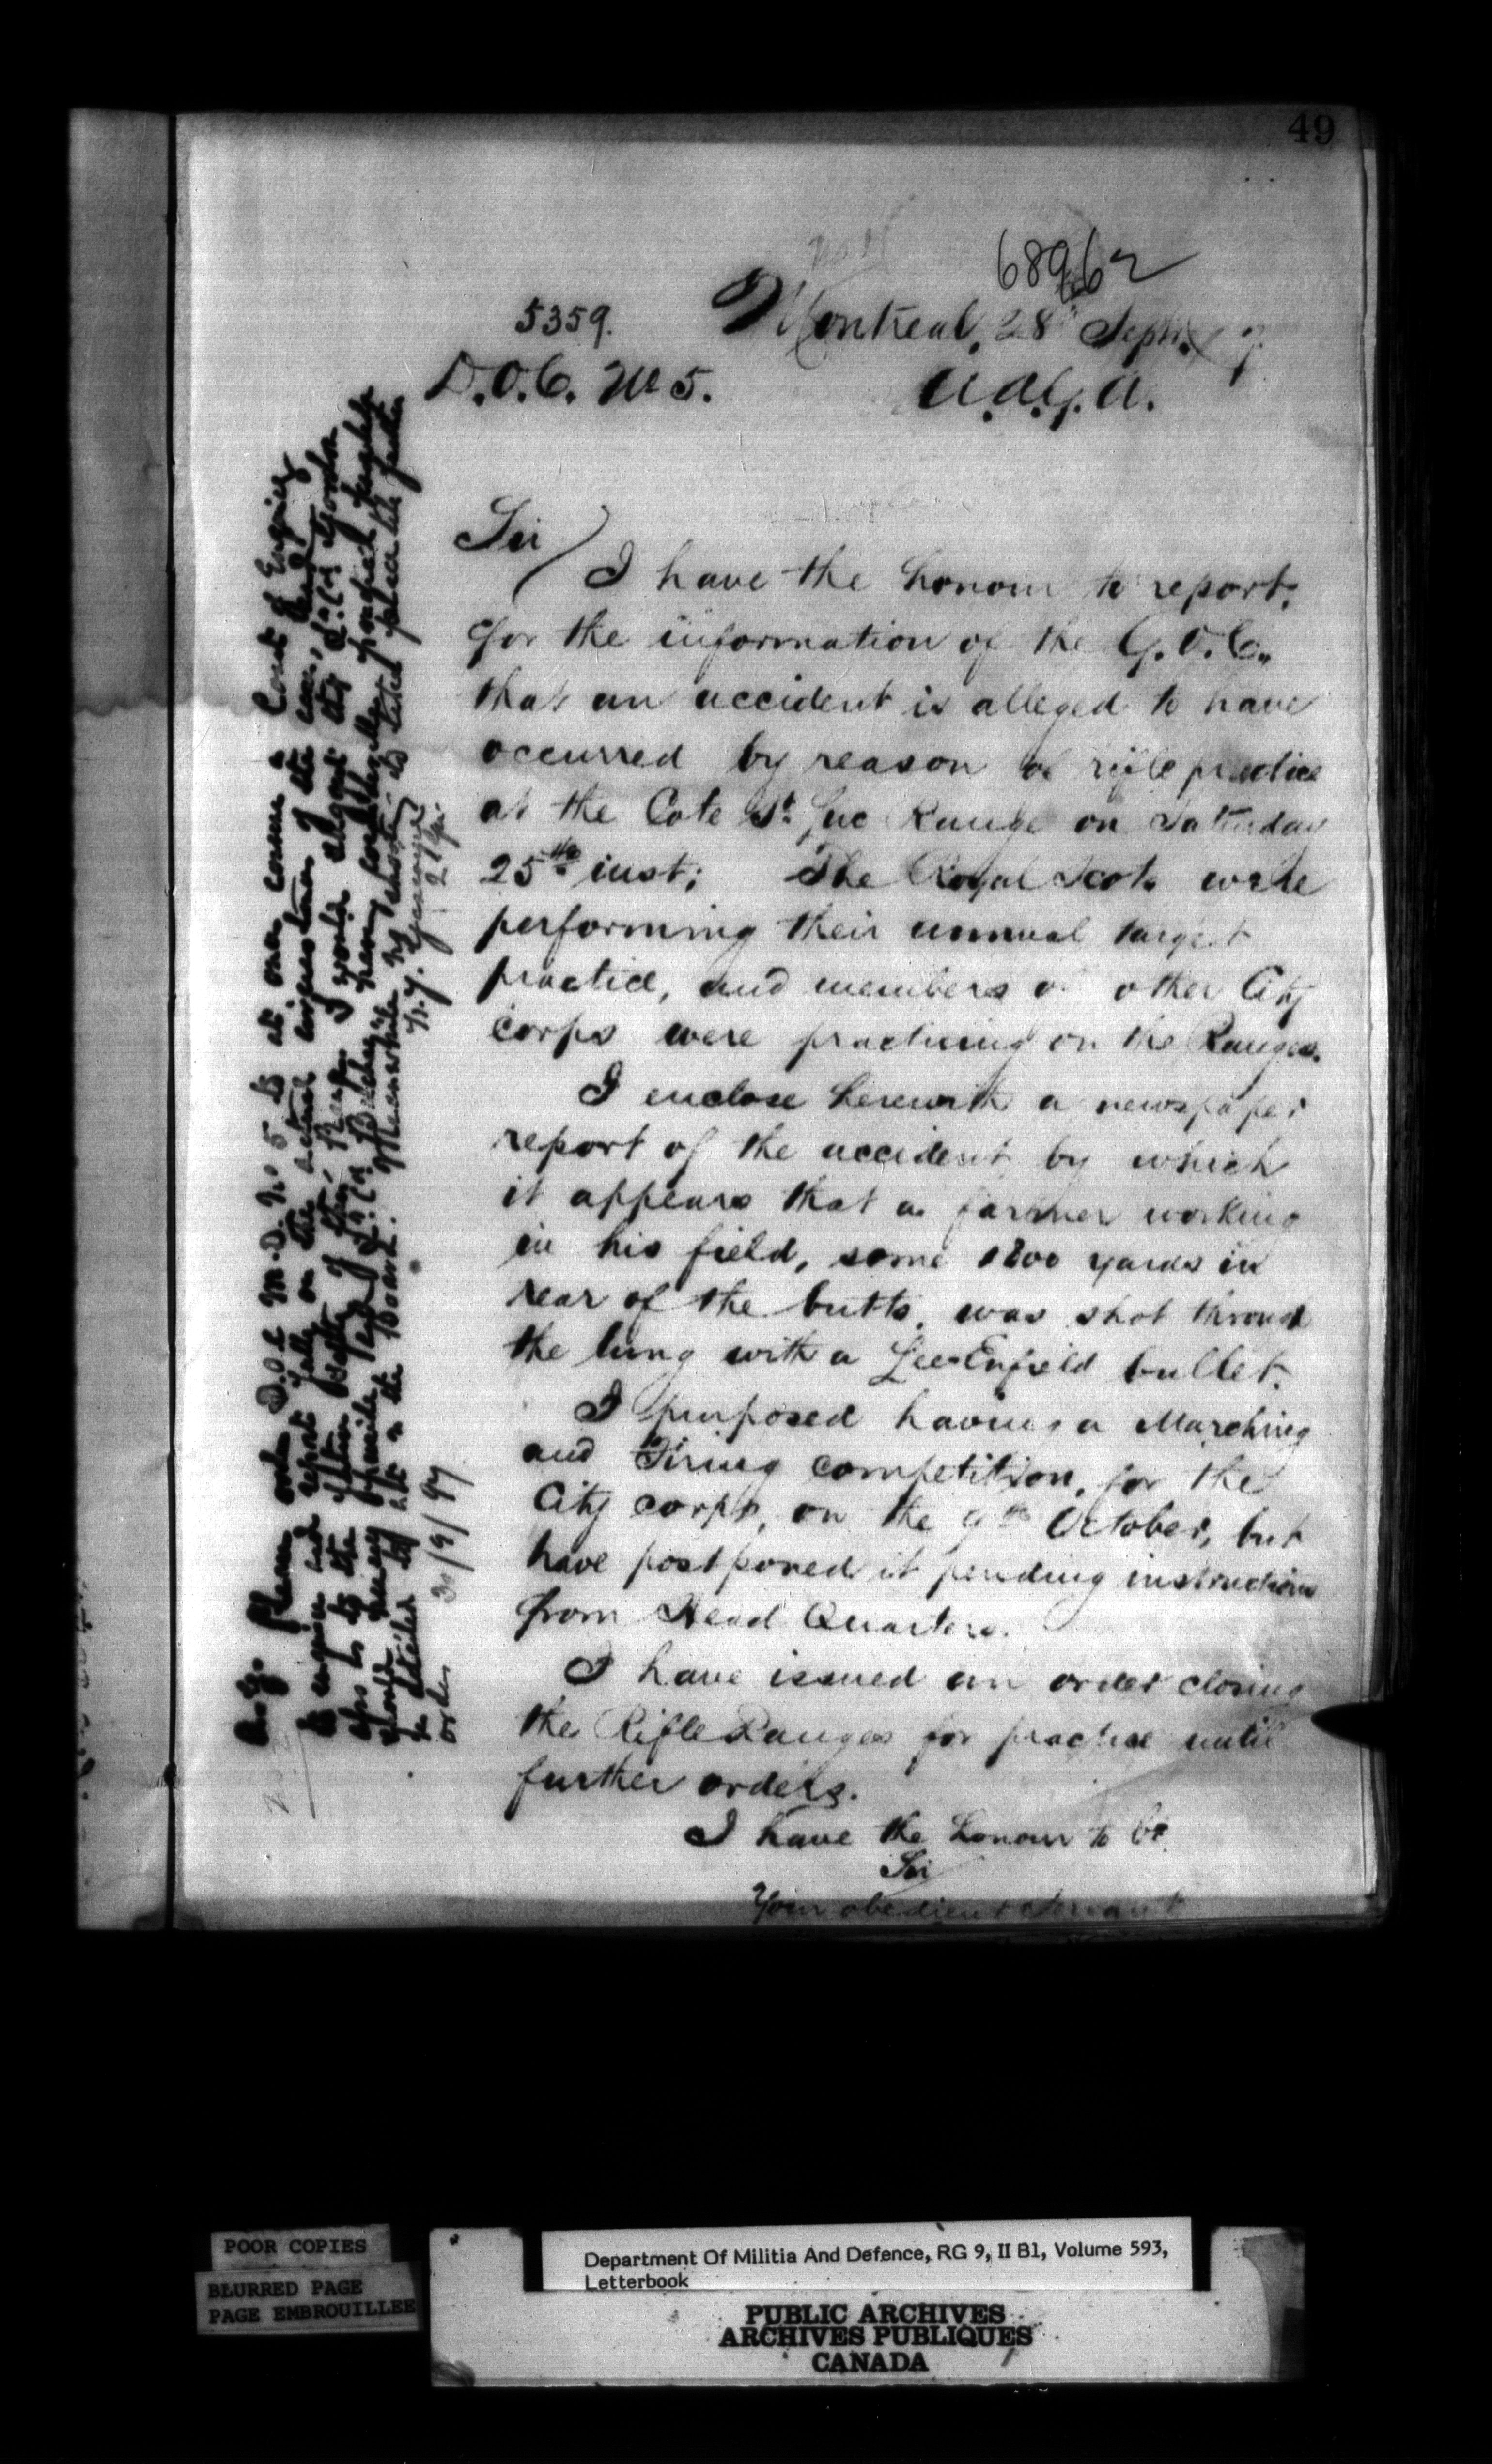 49
68962
5359. Montreal, 28th Sept. 97
D.O.C. No 5. A.A.G.A.
Sir
I have the honour to report,
for the information of the G.O.C.,
that an accident is alleged to have
occurred by reason of rifle practice
at the Cote St. Luc Range on Saturday
25th inst; The Royal Scots were
performing their annual target
practice, and members of other City
corps were practicing on the Ranges.
I enclose herewith a newspaper
report of the accident by which
it appears that a farmer working
in his field, some 1800 yards in
rear of the butts, was shot through
the lung with a Lee-Enfield bullet.
I purposed having a Marching
and Firing competition, for the
City corps, on the 9th October, but
have postponed it pending instructions
from Head Quarters.
I have issued an order closing
the Rifle Ranges for practice until
further orders.
I have the honour to be
Sir
Your obedient Servant
A.G. Please order D.O.C. M.D. No 5 to at once convene a Court of Enquiry
to enquire and report fully on the actual circumstances of the case, and
also as to the future safety of the Range. I would suggest that Lt. Col. Gordon
should preside
be detailed to sit on the Board. Meanwhile no shooting to take place till further
orders 30/9/97
POOR COPIES
BLURRED PAGE
PAGE EMBROUILLEE
Department Of Militia And Defence, RG 9, II B1, Volume 593,
Letterbook
PUBLIC ARCHIVES
ARCHIVES PUBLIQUES
CANADA